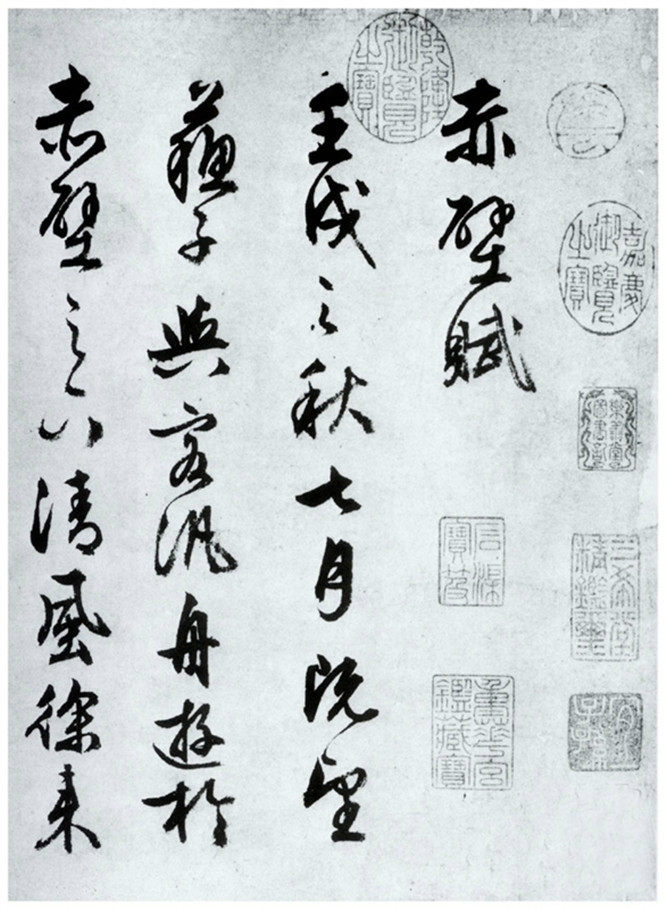 嘉慶御覽之寶
三希堂精鑑璽
宜子孫
赤壁賦
石渠寶笈
重華宮鑑藏寶
乾隆御覽之寶
壬戌之秋七月既望
蘇子與客汎舟遊於
赤壁之下清風徐來